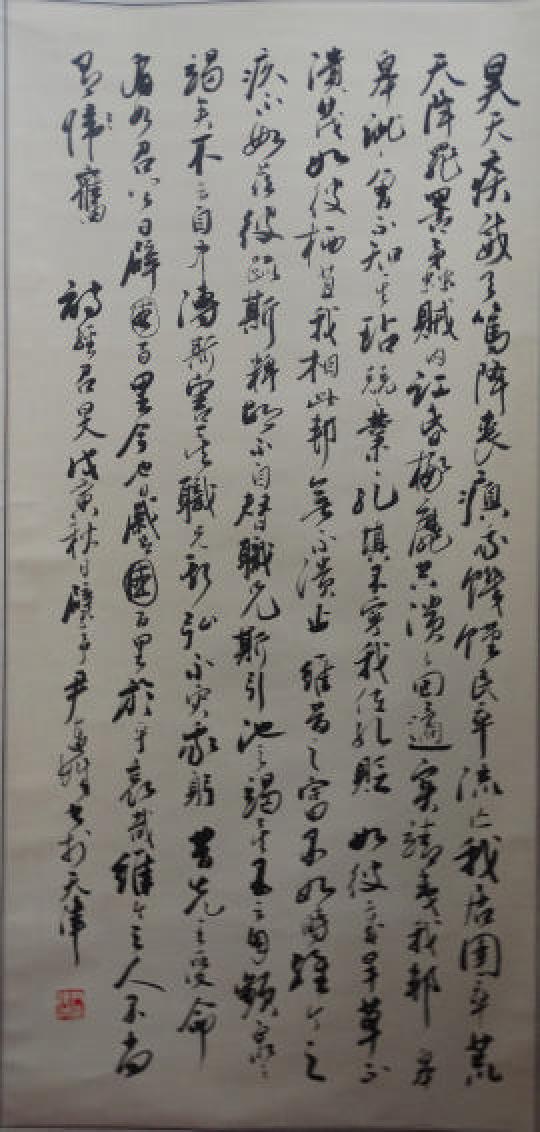 旻天疾威天篤降喪瘨我饑饉民卒流亡我居圉卒荒
天降罪罟蟊賊内訌昏椓靡共潰潰回遹實靖夷我邦 皋
皋訿訿曾不知其玷兢兢業業孔填不寧我位孔貶 如彼歲旱草不
潰茂如彼栖苴我相此邦無不潰止 維昔之富不如時維今之
疚不如茲彼疏斯粺胡不自替職兄斯引池之竭矣不云自頻泉之
竭矣不云自中溥斯害矣職兄斯弘不烖我躬 昔先王受命
有如召公日辟國百里今也日蹙國百里於乎哀哉維今之人不尚
舊 詩經召旻 戊寅秋日 尹 書於天津